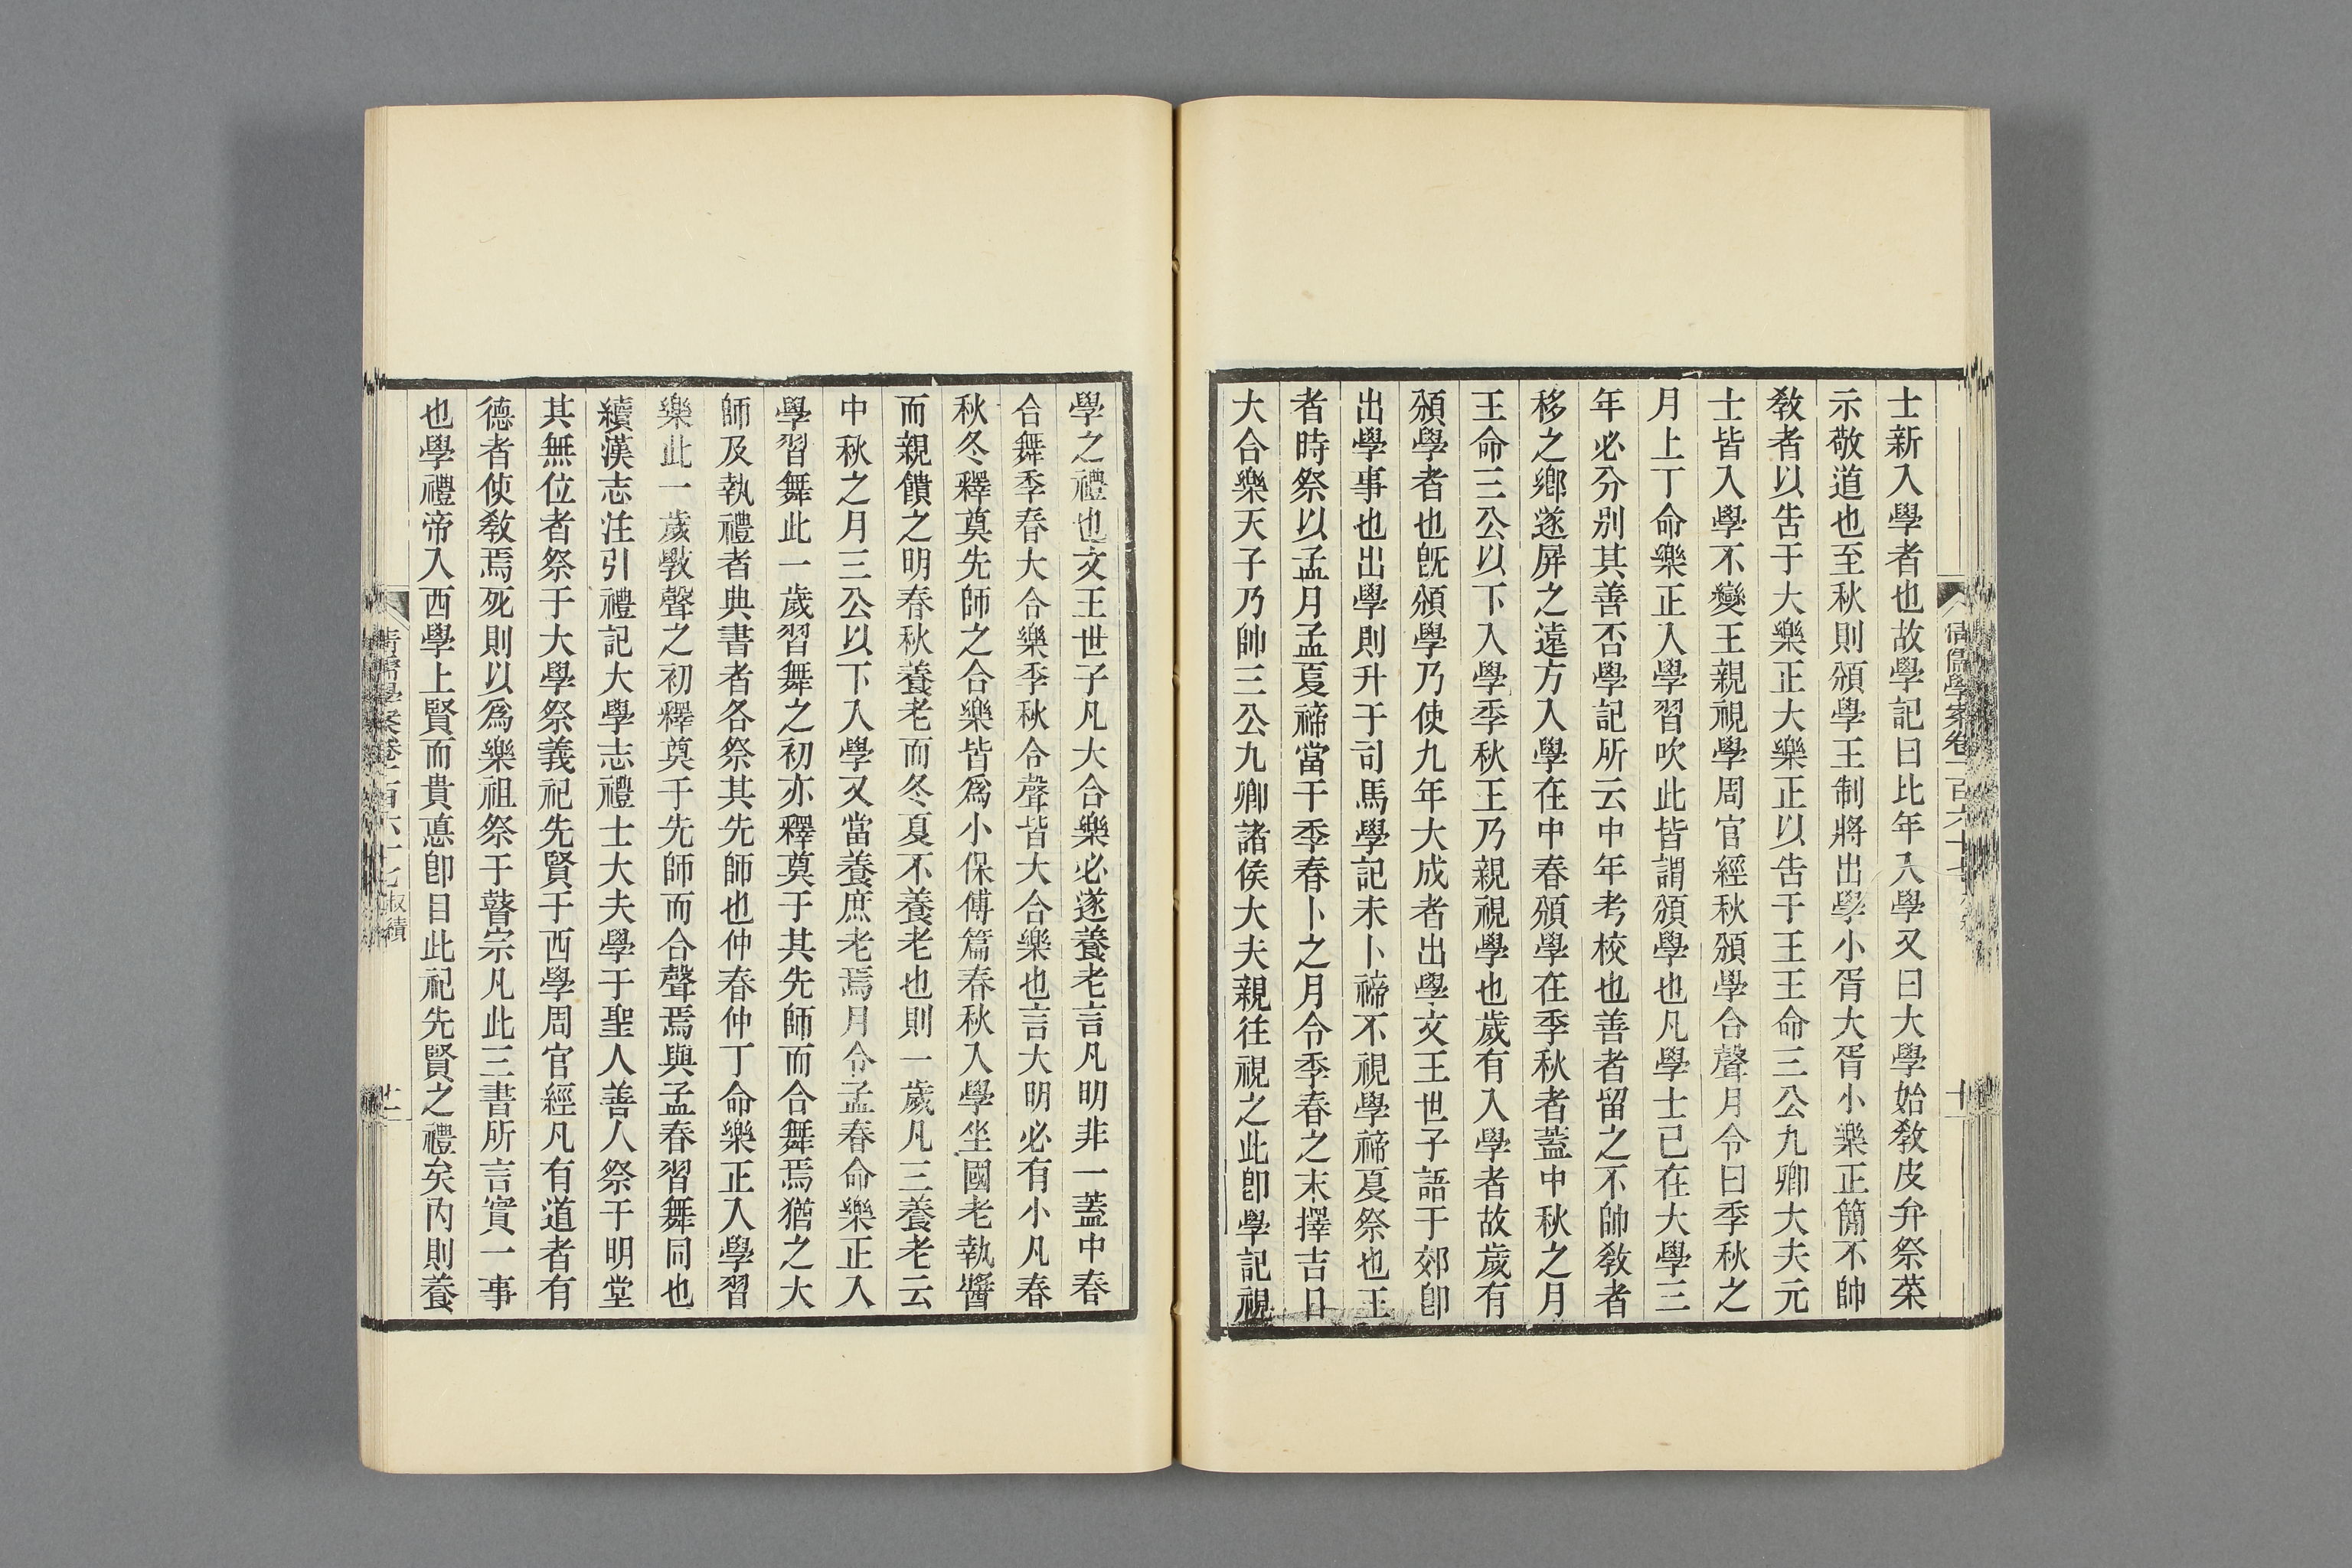 士新入學者也故學記曰比年入學又曰大學始敎皮弁祭菜
示敬道也至秋則頒學王制將出學小胥大胥小樂正簡不帥
敎者以告于大樂正大樂正以告于王王命三公九卿大夫元
士皆入學不變王親視學周官經秋頒學合聲月令曰季秋之
月上丁命樂正入學習吹此皆謂頒學也凡學士已在大學三
年必分別其善否學記所云中年考校也善者留之不帥敎者
移之鄉遂屏之遠方入學在中春頒學在季秋者蓋中秋之月
王命三公以下入學季秋王乃親視學也歲有入學者故歲有
頒學者也旣頒學乃使九年大成者出學文王世子語于郊卽
出學事也出學則升于司馬學記未卜禘不視學禘夏祭也王
者時祭以孟月孟夏禘當于季春卜之月令季春之末擇吉日
大合樂天子乃帥三公九卿諸侯大夫親往視之此卽學記視
學之禮也文王世子凡大合樂必遂養老言凡明非一蓋中春
合舞季春大合樂季秋合聲皆大合樂也言大明必有小凡春
秋冬釋奠先師之合樂皆爲小保傅篇春秋入學坐國老執醬
而親饋之明春秋養老而冬夏不養老也則一歲凡三養老云
中秋之月三公以下入學又當養庶老焉月令孟春命樂正入
學習舞此一歲習舞之初亦釋奠于其先師而合舞焉猶之大
師及執禮者典書者各祭其先師也仲春仲丁命樂正入學習
樂此一歲敎聲之初釋奠于先師而合聲焉與孟春習舞同也
續漢志注引禮記大學志禮士大夫學于聖人善人祭于明堂
其無位者祭于大學祭義祀先賢于西學周官經凡有道者有
德者使敎焉死則以爲樂祖祭于瞽宗凡此三書所言實一事
也學禮帝入西學上賢而貴悳卽目此祀先賢之禮矣內則養
清儒學案卷二百六十七